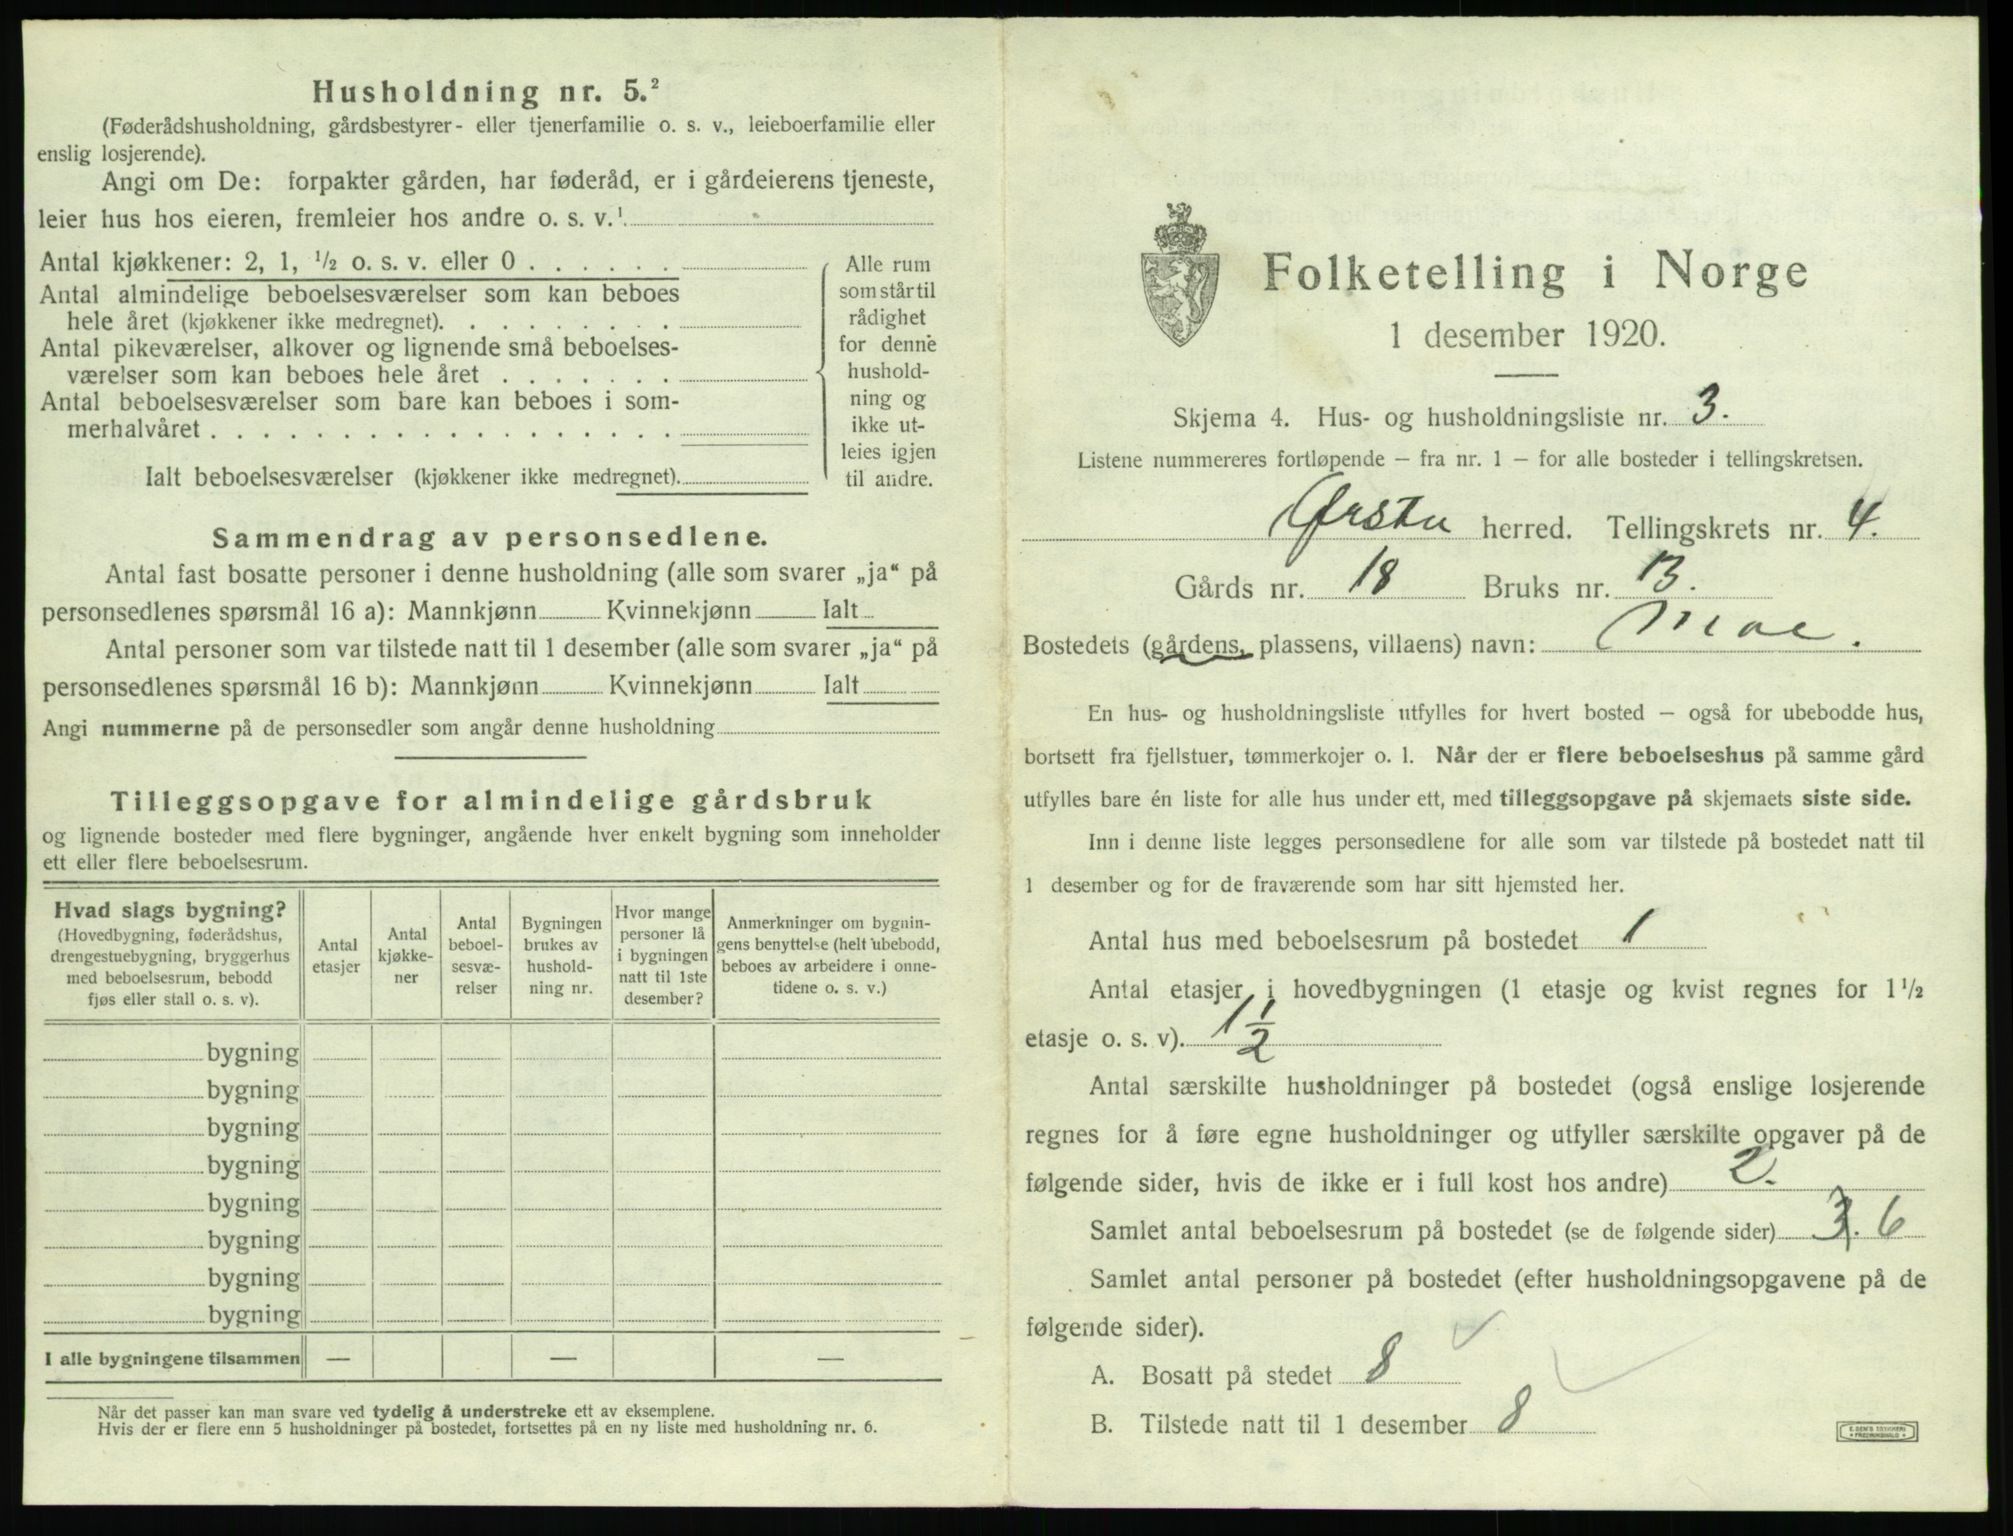 Husholdning nr. 5.²
(Føderådshusholdning, gårdsbestyrer- eller tjenerfamilie o. s. v., leieboerfamilie eller
enslig losjerende).
Angi om De: forpakter gården, har føderåd, er i gårdeierens tjeneste,
leier hus hos eieren, fremleier hos andre o. s. v.¹
Antal kjøkkener: 2, 1, ½ o. s. v. eller 0 . . . . . .
Antal almindelige beboelsesværelser som kan beboes
hele året (kjøkkener ikke medregnet). . . . . . . . .
Antal pikeværelser, alkover og lignende små beboelses-
værelser som kan beboes hele året . . . . . . .
Antal beboelsesværelser som bare kan beboes i som-
merhalvåret . . . . . . . . . . . . . . . . . .
Ialt beboelsesværelser (kjøkkener ikke medregnet).
Alle rum
som står til
rådighet
for denne
hushold-
ning og
ikke ut-
leies igjen
til andre.
Sammendrag av personsedlene.
Antal fast bosatte personer i denne husholdning (alle som svarer „ja“ på
personsedlenes spørsmål 16 a): Mannkjønn Kvinnekjønn Ialt
Antal personer som var tilstede natt til 1 desember (alle som svarer „ja“ på
personsedlenes spørsmål 16 b): Mannkjønn Kvinnekjønn Ialt
Angi nummerne på de personsedler som angår denne husholdning
Tilleggsopgave for almindelige gårdsbruk
og lignende bosteder med flere bygninger, angående hver enkelt bygning som inneholder
ett eller flere beboelsesrum.
Hvad slags bygning?
(Hovedbygning, føderådshus,
drengestuebygning, bryggerhus
med beboelsesrum, bebodd
fjøs eller stall o. s. v).
Antal
etasjer
Antal
kjøkke-
ner
Antal
beboel-
sesvæ-
relser
Bygningen
brukes av
hushold-
ning nr.
Hvor mange
personer lå
i bygningen
natt til 1ste
desember?
Anmerkninger om bygnin-
gens benyttelse (helt ubebodd,
beboes av arbeidere i onne-
tidene o. s. v.)
bygning
bygning
bygning
bygning
bygning
bygning
bygning
bygning
I alle bygningene tilsammen — — —
Når det passer kan man svare ved tydelig å understreke ett av eksemplene.
Hvis der er flere enn 5 husholdninger på bostedet, fortsettes på en ny liste med husholdning nr. 6.
Folketelling i Norge
1 desember 1920.
Skjema 4. Hus- og husholdningsliste nr. 3.
Listene nummereres fortløpende – fra nr. 1 – for alle bosteder i tellingskretsen.
Ørsta herred. Tellingskrets nr. 4.
Gårds nr. 18 Bruks nr. 13.
Bostedets (gårdens, plassens, villaens) navn: Moe.
En hus- og husholdningsliste utfylles for hvert bosted – også for ubebodde hus,
bortsett fra fjellstuer, tømmerkojer o. l. Når der er flere beboelseshus på samme gård
utfylles bare én liste for alle hus under ett, med tilleggsopgave på skjemaets siste side.
Inn i denne liste legges personsedlene for alle som var tilstede på bostedet natt til
1 desember og for de fraværende som har sitt hjemsted her.
Antal hus med beboelsesrum på bostedet 1
Antal etasjer i hovedbygningen (1 etasje og kvist regnes for 1½
etasje o. s. v). 1½
Antal særskilte husholdninger på bostedet (også enslige losjerende
regnes for å føre egne husholdninger og utfyller særskilte opgaver på de
følgende sider, hvis de ikke er i full kost hos andre) 2.
Samlet antal beboelsesrum på bostedet (se de følgende sider) 3. 6
Samlet antal personer på bostedet (efter husholdningsopgavene på de
følgende sider).
A. Bosatt på stedet 8
B. Tilstede natt til 1 desember 8